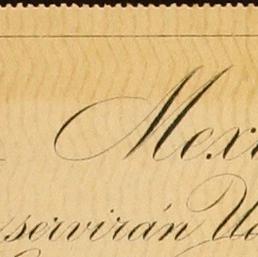 Mex
servirán